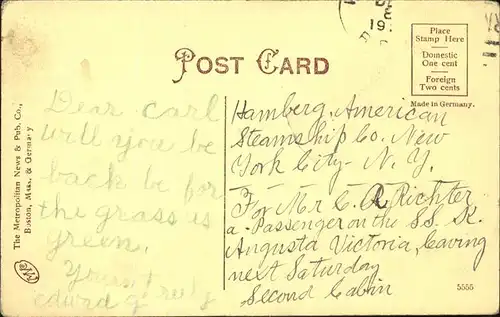 POST CARD
Place
Stamp Here
Domestic
One cent
Foreign
Two cents
Made in Germany.
19
The Metropolitan News & Pub. Co.,
Boston, Mass. & Germany
Dear Carl
will you be
back be for
the grass is
green.
Yours
edward
Hamberg, American
Steamship Co. New
York City - N. Y.
For Mr C. R Richter
a - Passenger on the SS. K.
Augusta Victoria, leaving
next Saturday
Second Cabin
5555